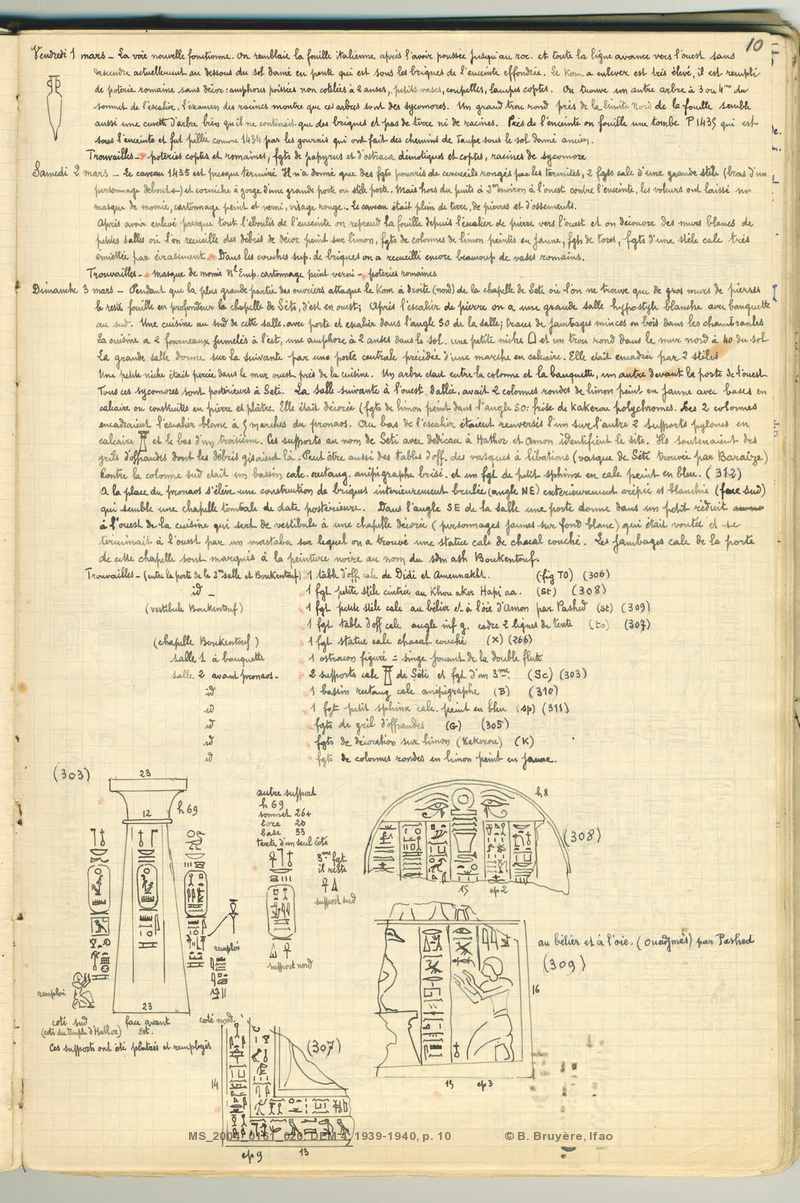 10
Vendredi 1 mars - La voie nouvelle fonctionne. On remblaie la fouille italienne après l'avoir poussée jusqu'au roc. et toute la ligne avance vers l'ouest sans
descendre actuellement au dessous du sol damé en pente qui est sous les briques de l'enceinte effondrée. Le Kom a enlever est très élevé, il est rempli
de poterie romaine sans décor: amphores poissées non cotelées à 2 anses, petits vases, coupelles, lampes coptes. On trouve un autre arbre à 3 ou 4m du
sommet de l'escalier. l'examen des racines montre que ces arbres sont des sycomores. Un grand trou rond près de la limite nord de la fouille semble
aussi une cuvette d'arbre bien qu'il ne contienait que des briques et pas de terre ni de racines. Près de l'enceinte on fouille une tombe P1435 qui est
sous l'enceinte et fut pillée comme 1434 par les gournis qui ont fait des chemins de Taupe sous le sol damé ancien.
Trouvailles - poteries coptes et romaines, fgts de papyrus et d'ostraca démotiques et coptes, racines de sycomore
Samedi 2 mars - Le caveau 1435 est presque terminé Il n'a donné que des fgts pourris de cercueils rongés par les termites, 2 fgts calc d'une grande stèle (bras d'un
personnage debout) et corniche à gorge d'une grande porte ou stèle porte. Mais hors du puits à 2m environ à l'ouest contre l'enceinte. les voleurs ont laissé un
masque de momie, cartonnage peint et verni, visage rouge. Le caveau était plein de terre, de pierres et d'ossements.
Après avoir enlevé presque tout l'éboulis de l'enceinte on reprend la fouille depuis l'escalier de pierre vers l'ouest et on découvre des murs blancs de
petites salles où l'on recueille des débris de décor peint sur limon, fgts de colonnes de limon peintes en jaune, fgts de tores, fgts d'une stèle calc très
émiettée par écrasement. Dans les couches sup. de briques on a recueilli encore beaucoup de vases romains.
Trouvailles - masque de momie Nl Emp. cartonnage peint verni - poteries romaines
Dimanche 3 mars - Pendant que la plus grande partie des ouvriers attaque le Kom à droite (nord) de la chapelle de Seti où l'on ne trouve que de gros murs de pierres
le reste fouille en profondeur la chapelle de Séti, d'est en ouest; Après l'escalier de pierre on a une grande salle hypostyle blanche avec banquette
au sud. Une cuisine au sud de cette salle. avec porte et escalier dans l'angle SO de la salle; traces de jambages minces en bois dans les chambranles
la cuisine a 2 fourneaux jumelés à l'est, une amphore à 2 anses dans le sol. une petite niche et un trou rond dans le mur nord à 40 du sol
La grande salle donne sur la suivante par une porte centrale précédée d'une marche en calcaire. Elle était encadrée par 2 stèles
Une petite niche était percée dans le mur ouest près de la cuisine. Un arbre était entre la colonne et la banquette, un autre devant la porte de l'ouest.
Tous ces sycomores sont postérieurs à Seti. La salle suivante à l'ouest. dallée, avait 2 colonnes rondes de limon peint en jaune avec bases en
calcaire ou construites en pierre et plâtre. Elle était décorée (fgts de limon peint dans l'angle SO: frise de Kakerou polychromes. Les 2 colonnes
encadraient l'escalier blanc à 5 marches du pronaos. Au bas de l'escalier étaient renversés l'un sur l'autre 2 supports pylones en
calcaire et le bas d'un troisième. Ces supports au nom de Seti avec dédicace à Hathor et Amon identifient le site. Ils soutenaient des
grils d'offrandes dont les débris gisaient là. Peut être aussi des tables d'off. des vasques à libations (vasque de Séti trouvée par Baraize)
Contre la colonne sud était un bassin calc. rectang. anépigraphe brisé. et un fgt de petit sphinx en calc peint en bleu. (312)
A la place du pronaos s'élève une construction de briques intérieurement brulée (angle NE) extérieurement crépie et blanchie (face sud)
qui semble une chapelle tombale de date postérieure. Dans l'angle SE de la salle une porte donne dans un petit réduit
à l'ouest de la cuisine qui sert de vestibule à une chapelle décorée (personnages jaunes sur fond blanc) qui était voutée et se
terminait à l'ouest par un mastaba sur lequel on a trouvé une statue calc de chacal couché. Les jambages calc de la porte
de cette chapelle sont marqués à la peinture noire au nom du sdm ash Boukentouf.
Trouvailles - (entre la porte de la 2me salle et Boukentouf) 1 table d'off. calc de Didi et Amennakht. (fig TO) (306)
id - 1 fgt petite stèle cintrée au Khou aker Hapi aa. (st) (308)
(vestibule Boukentouf) 1 fgt petite stèle calc au bélier et à l'oie d'Amon par Pashed (st) (309)
1 fgt table d'off calc angle inf g. cadre 2 lignes de texte (to) (307)
(chapelle Boukentouf) 1 fgt statue calc chacal couché (X) (266)
salle 1 à banquette 1 ostracon figuré = singe jouant de la double flute
salle 2 avant pronaos - 2 supports calc de Séti et fgt d'un 3me (Sc) (303)
id 1 bassin rectang calc anépigraphe (B) (310)
id 1 fgt petit sphinx calc. peint en bleu (sp) (311)
id fgts de gril d'offrandes (G) (305)
id fgts de décoration sur limon (Kakerou) (K)
id fgts de colonnes rondes en limon peint en jaune.
(303)
23
12
h 69
23
remploi
remploi
coté sud
(coté du temple d'Hathor)
face avant
Est.
coté nord
Ces supports ont été platrés et remployés
autre support
h 69
sommet 26+
tore 20
base 33
texte d'un seul coté
support nord
3me fgt
il reste
support sud
h 8
(308)
15 ep 2
au bélier et à l'oie. (Ouadjmès) par Pashed
(309)
16
15 ep 3
(307)
14
ep 9 13
MS_2004_0151_020. DEM 4, 1939-1940, p. 10 © B. Bruyère, Ifao